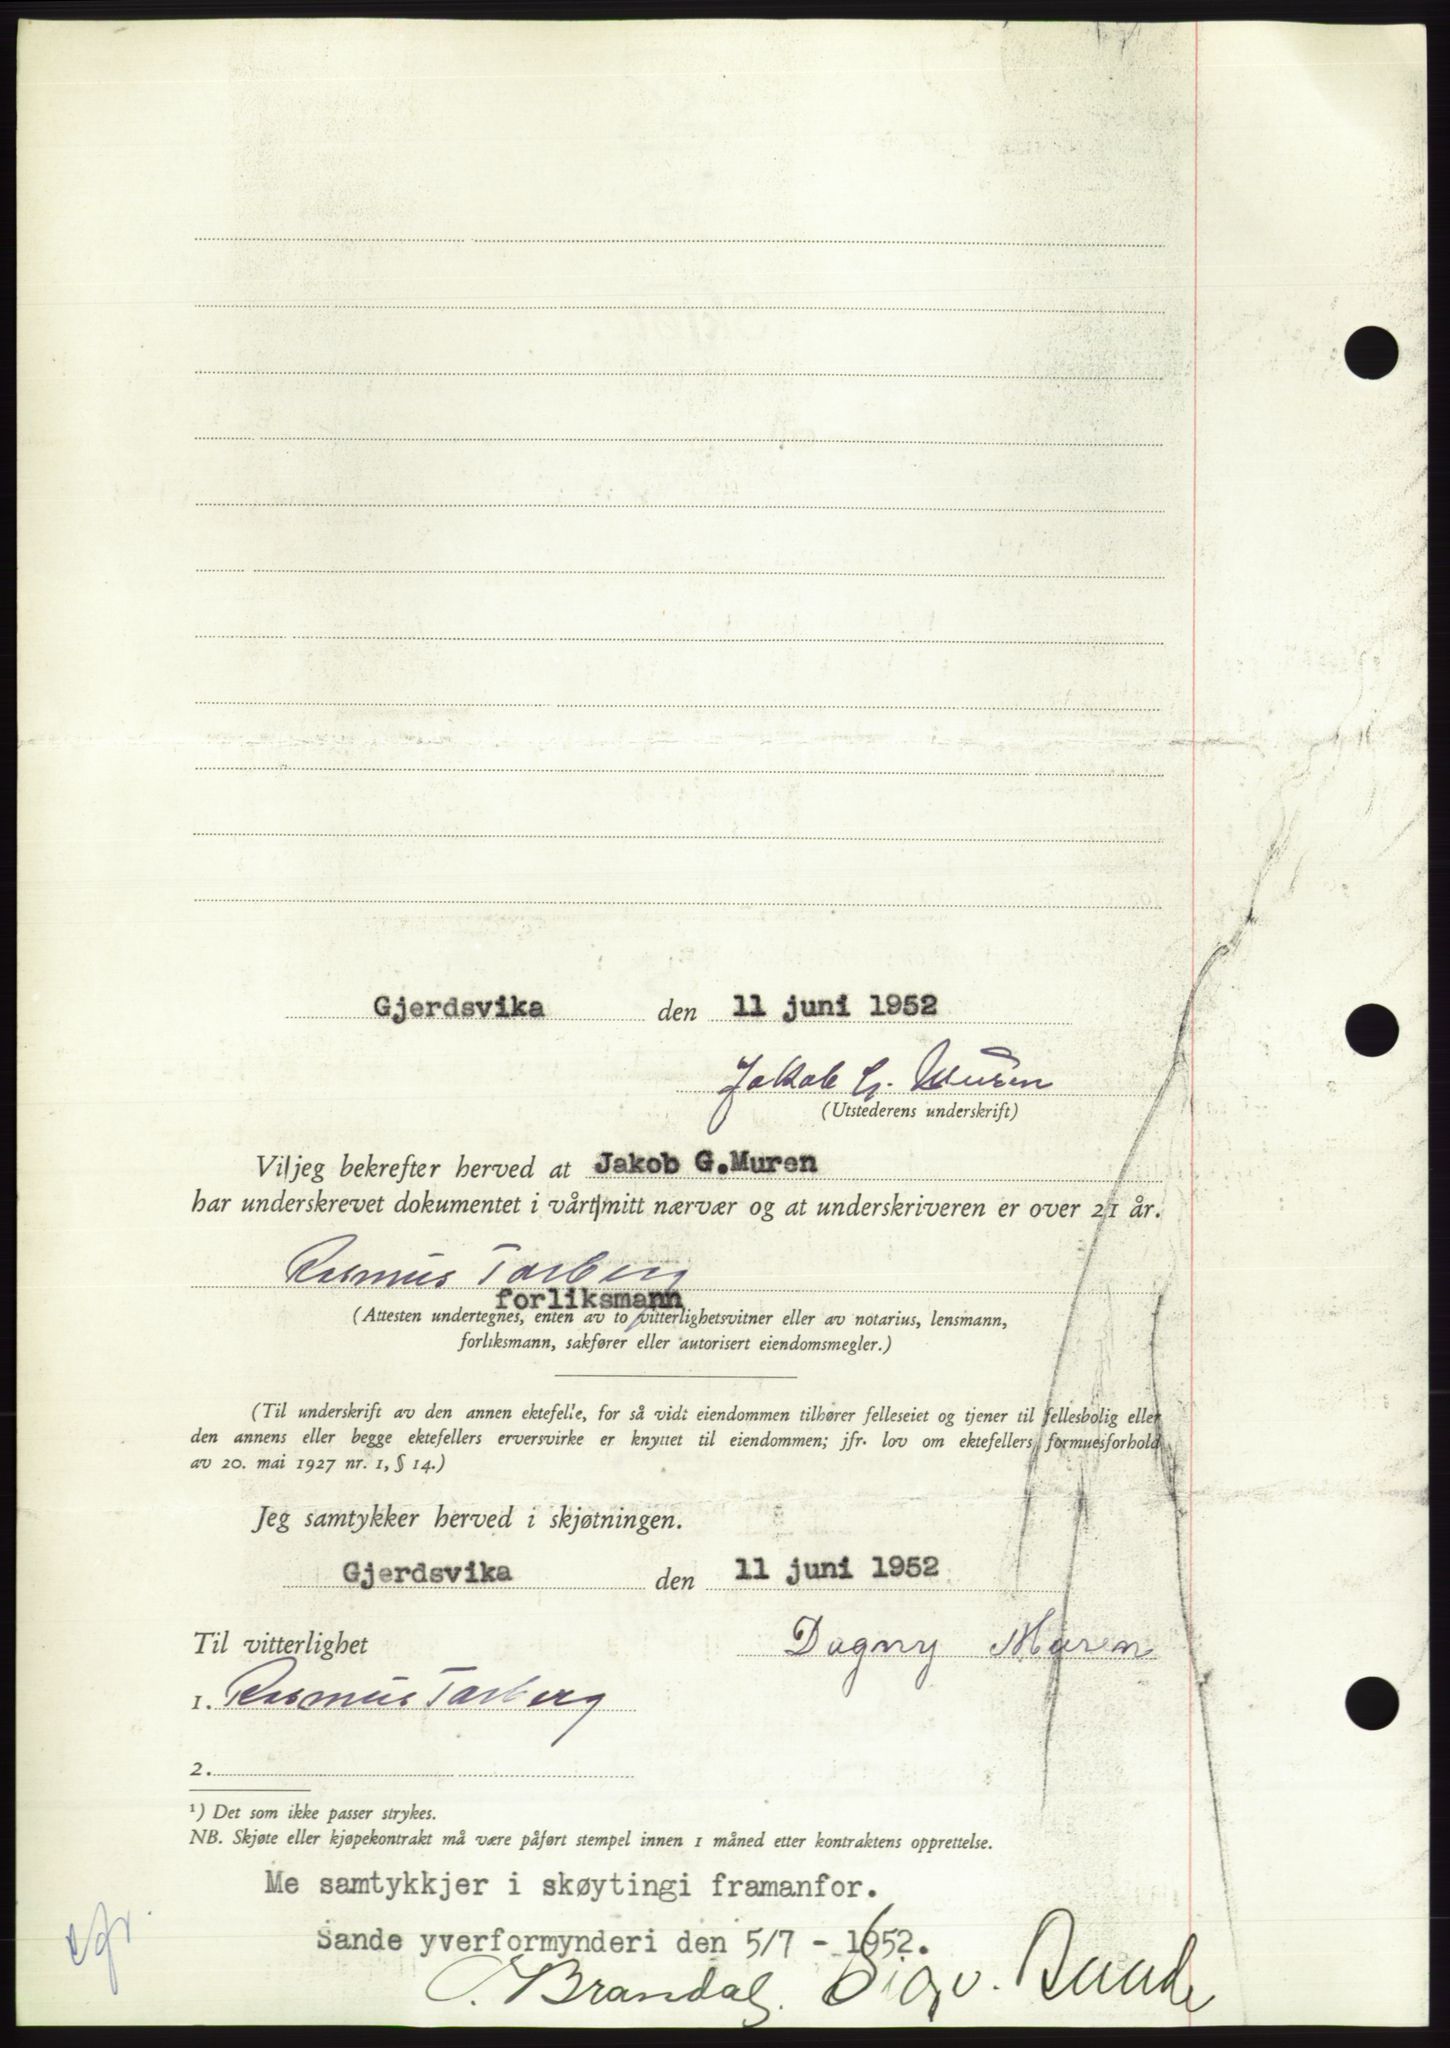 Gjerdsvika den 11 juni 1952
Jakob G. Muren
(Utstederens underskrift)
Vi/jeg bekrefter herved at Jakob G.Muren
har underskrevet dokumentet i vårt/mitt nærvær og at underskriveren er over 21 år.
Rasmus Tarberg
forliksmann
(Attesten undertegnes, enten av to vitterlighetsvitner eller av notarius, lensmann,
forliksmann, sakfører eller autorisert eiendomsmegler.)
(Til underskrift av den annen ektefelle, for så vidt eiendommen tilhører felleseiet og tjener til fellesbolig eller
den annens eller begge ektefellers erversvirke er knyttet til eiendommen; jfr. lov om ektefellers formuesforhold
av 20. mai 1927 nr. 1, § 14.)
Jeg samtykker herved i skjøtningen.
Gjerdsvika den 11 juni 1952
Til vitterlighet Dagny Muren
1. Rasmus Tarberg
2.
¹) Det som ikke passer strykes.
NB. Skjøte eller kjøpekontrakt må være påført stempel innen 1 måned etter kontraktens opprettelse.
Me samtykkjer i skøytingi framanfor.
Sande yverformynderi den 5/7 - 1952.
Brandal. Sigv.